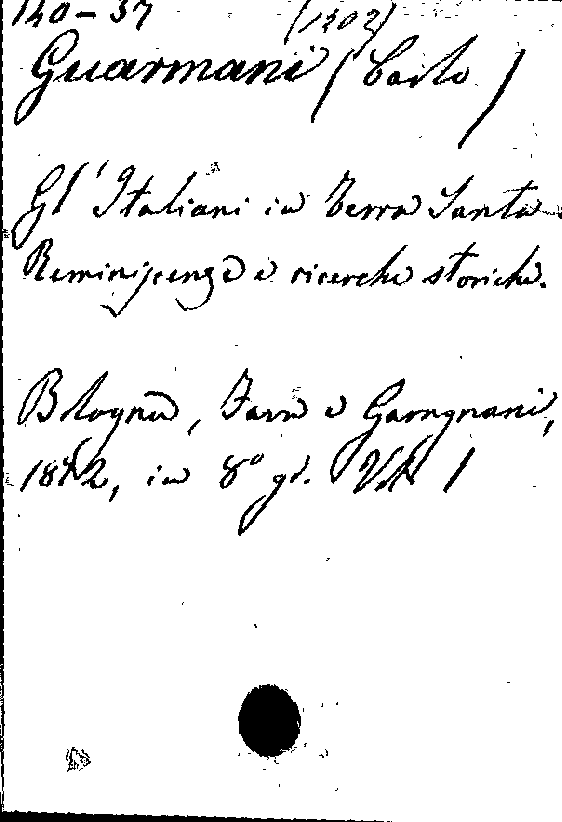 140-37 (1202)
Guarmani (Carlo)
Gl'Italiani in Terra Santa
Reminiscenze e ricerche storiche.
Bologna, Fava e Garagnani,
1872, in 8° gr.